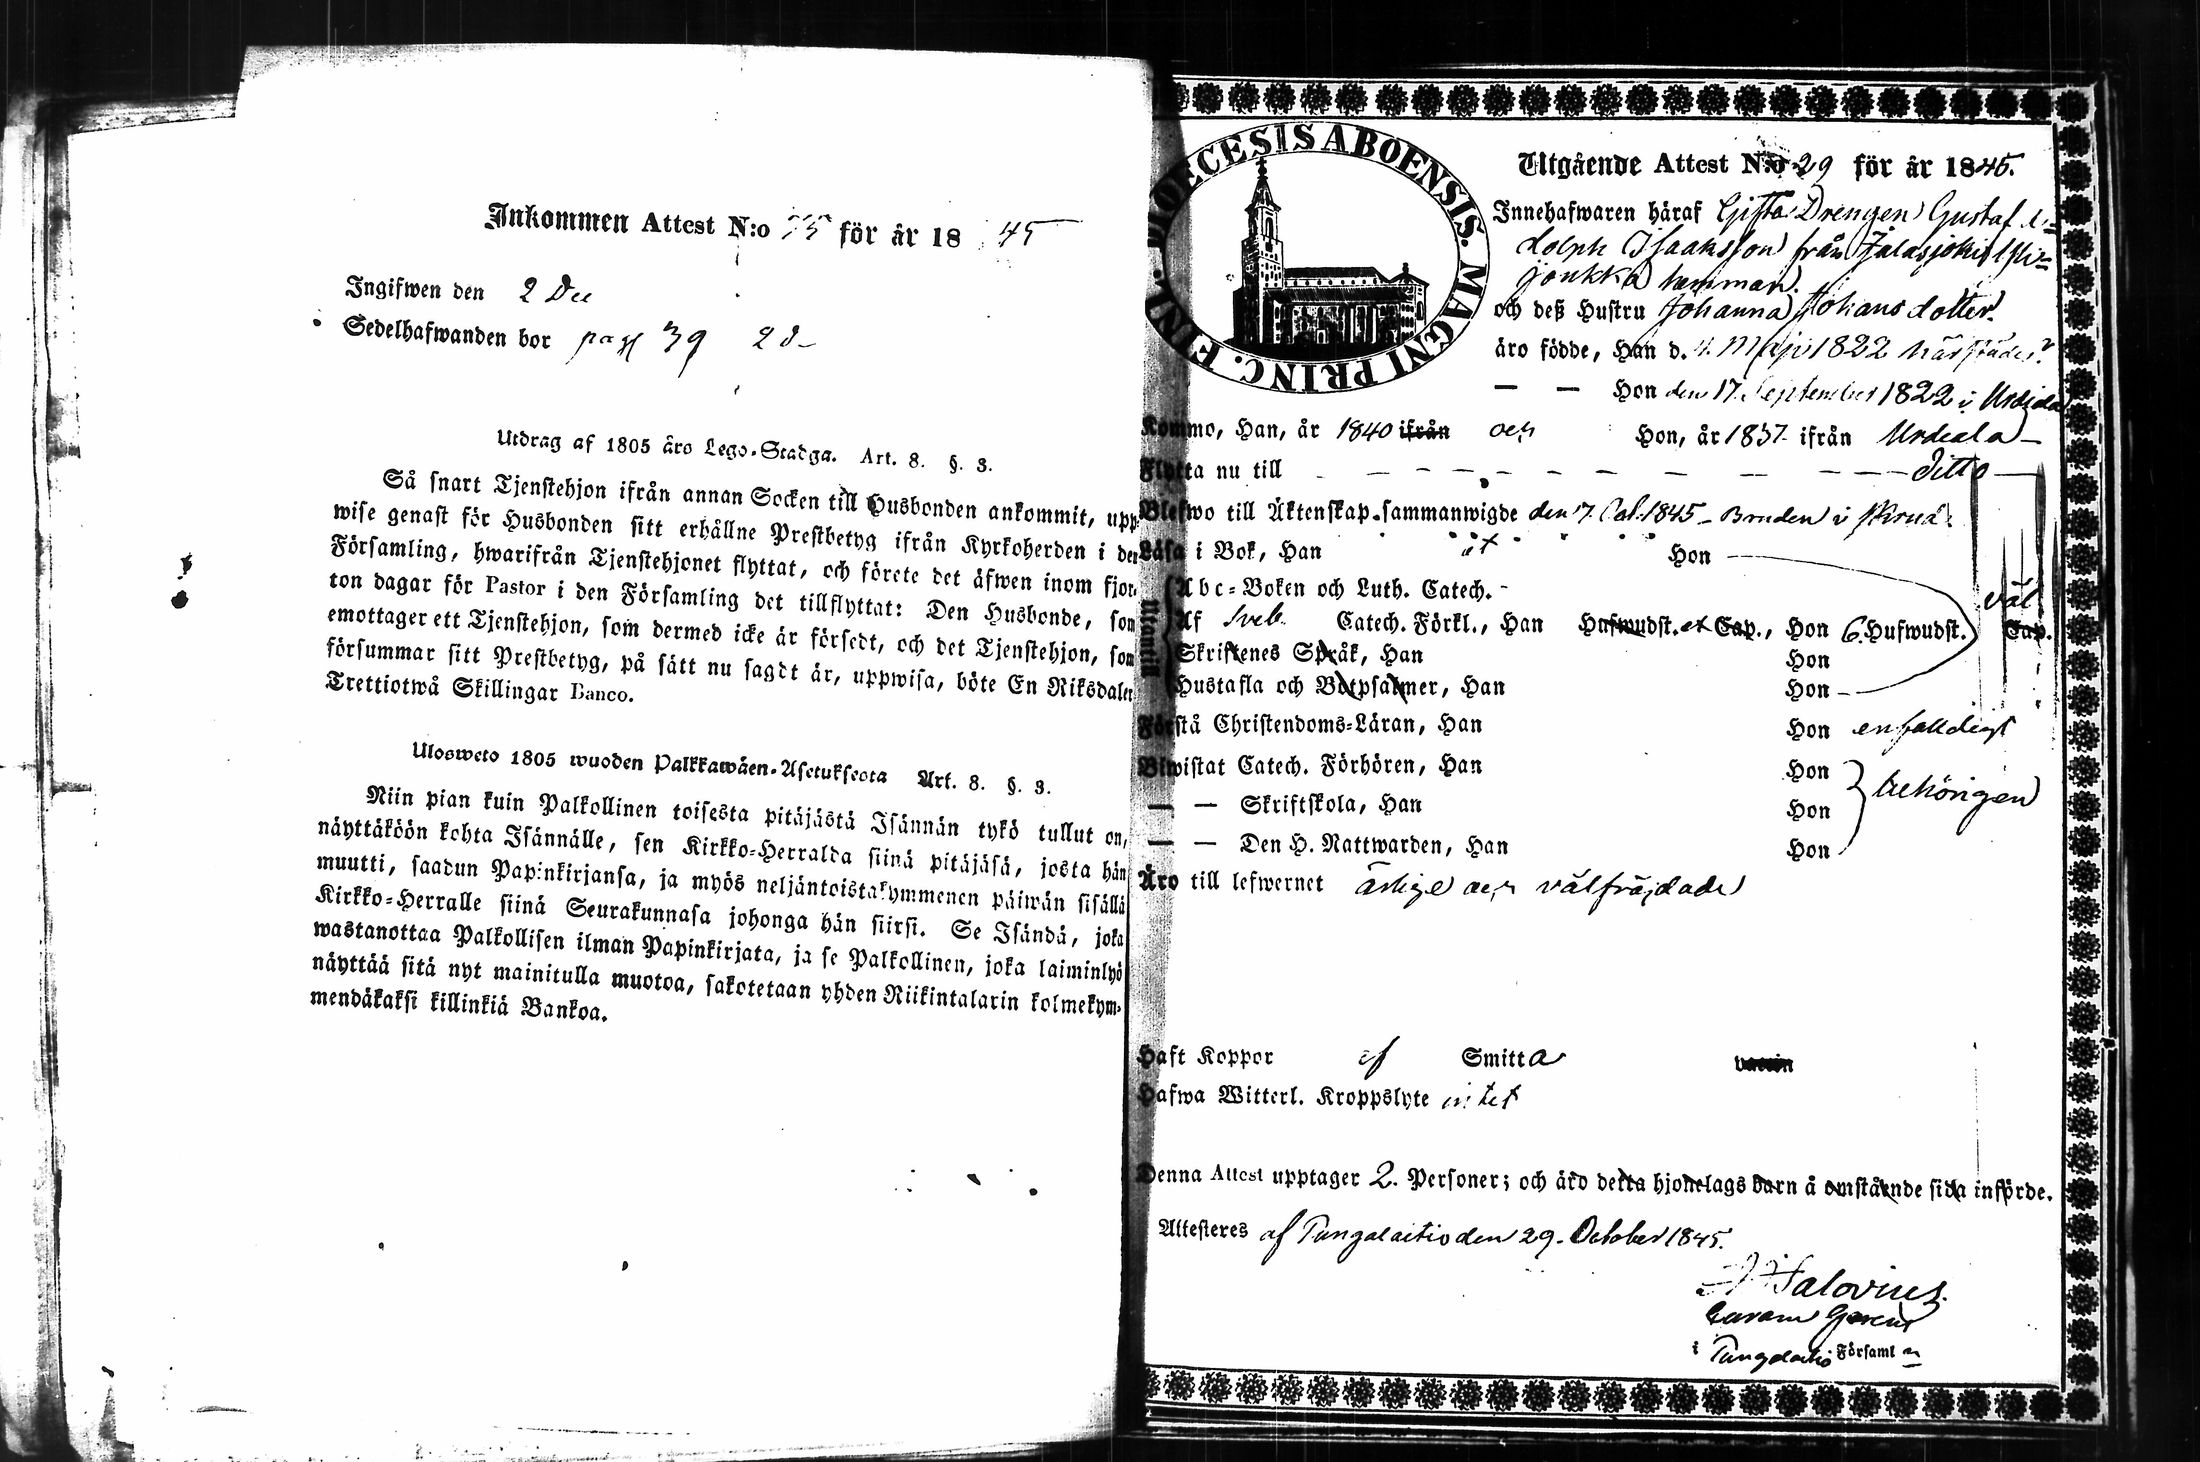 Inkommen Attest N:o 75 för år 18 45
Ingifwen den 2 Dec
Sedelhafwanden bor pag 39
Utdrag af 1805 års Lego-Stadga. Art. 8. §. 3.
Så snart Tjenstehjon ifrån annan Socken till Husbonden ankommit, upp-
wise genast för Husbonden sitt erhållne Prestbetyg ifrån Kyrkoherden i den
Församling, hwarifrån Tjenstehjonet flyttat, och förete det äfwen inom fjor-
ton dagar för Pastor i den Församling det tillflyttat: Den Husbonde, som
emottager ett Tjenstehjon, som dermed icke är försedt, och det Tjenstehjon, som
försummar sitt Prestbetyg, på sätt nu sagdt är, uppwisa, böte En Riksdaler
Trettiotwå Skillingar Banco.
Ulosweto 1805 wuoden Palkkawäen-Asetuksesta Art. 8. §. 3.
Niin pian kuin Palkollinen toisesta pitäjästä Isännän tykö tullut on,
näyttäköön kohta Isännälle, sen Kirkko-Herralda siinä pitäjäsä, josta hän
muutti, saadun Papinkirjansa, ja myös neljäntoistakymmenen päiwän sisällä
Kirkko-Herralle siinä Seurakunnasa johonga hän siirsi. Se Isändä, joka
wastanottaa Palkollisen ilman Papinkirjata, ja se Palkollinen, joka laiminlyö
näyttää sitä nyt mainitulla muotoa, sakotetaan yhden Riikintalarin kolmekym-
mendäkaksi killinkiä Bankoa.
DIOECESIS ABOENSIS. MAGNI PRINC. FINL.
Utgående Attest N:o 29 för år 1845.
Innehafwaren häraf Gifta Drengen Gustaf A-
dolph Isaaksson från Jalasjoki
jonkka hemman.
och deß Hustru Johanna Johansdotter.
äro födde, Han d. 4. Maji 1822 härstädes.
— — Hon den 17. September 1822 i Urdiala
Kommo, Han, år 1840 ifrån och Hon, år 1837 ifrån Urdiala
Flytta nu till — — — — — — — — — Ditto
Blefwo till Äktenskap sammanwigde den 7. 1845 - Bruden i
Läsa i Bok, Han et Hon
Abc-Boken och Luth. Catech. väl
Utantill
Af Sveb. Catech. Förkl., Han Hufwudst. et Cap., Hon 6. Hufwudst. Cap.
Skriftenes Språk, Han Hon
Hustafla och Botpsalmer, Han Hon
Förstå Christendoms-Läran, Han Hon enfalldigt
Biwistat Catech. Förhören, Han Hon
— — Skriftskola, Han Hon behörigen
— — Den H. Nattwarden, Han Hon
Äro till lefwernet ärlige och välfräjdade
Haft Koppor af Smitta vaccin
Hafwa Witterl. Kroppslyte intet
Denna Attest upptager 2. Personer; och äro detta hjonelags barn å omstående sida införde.
Attesteres af Pungalaitio den 29. October 1845.
Salovius.
Curam Gerens
i Pungalaitio Församl